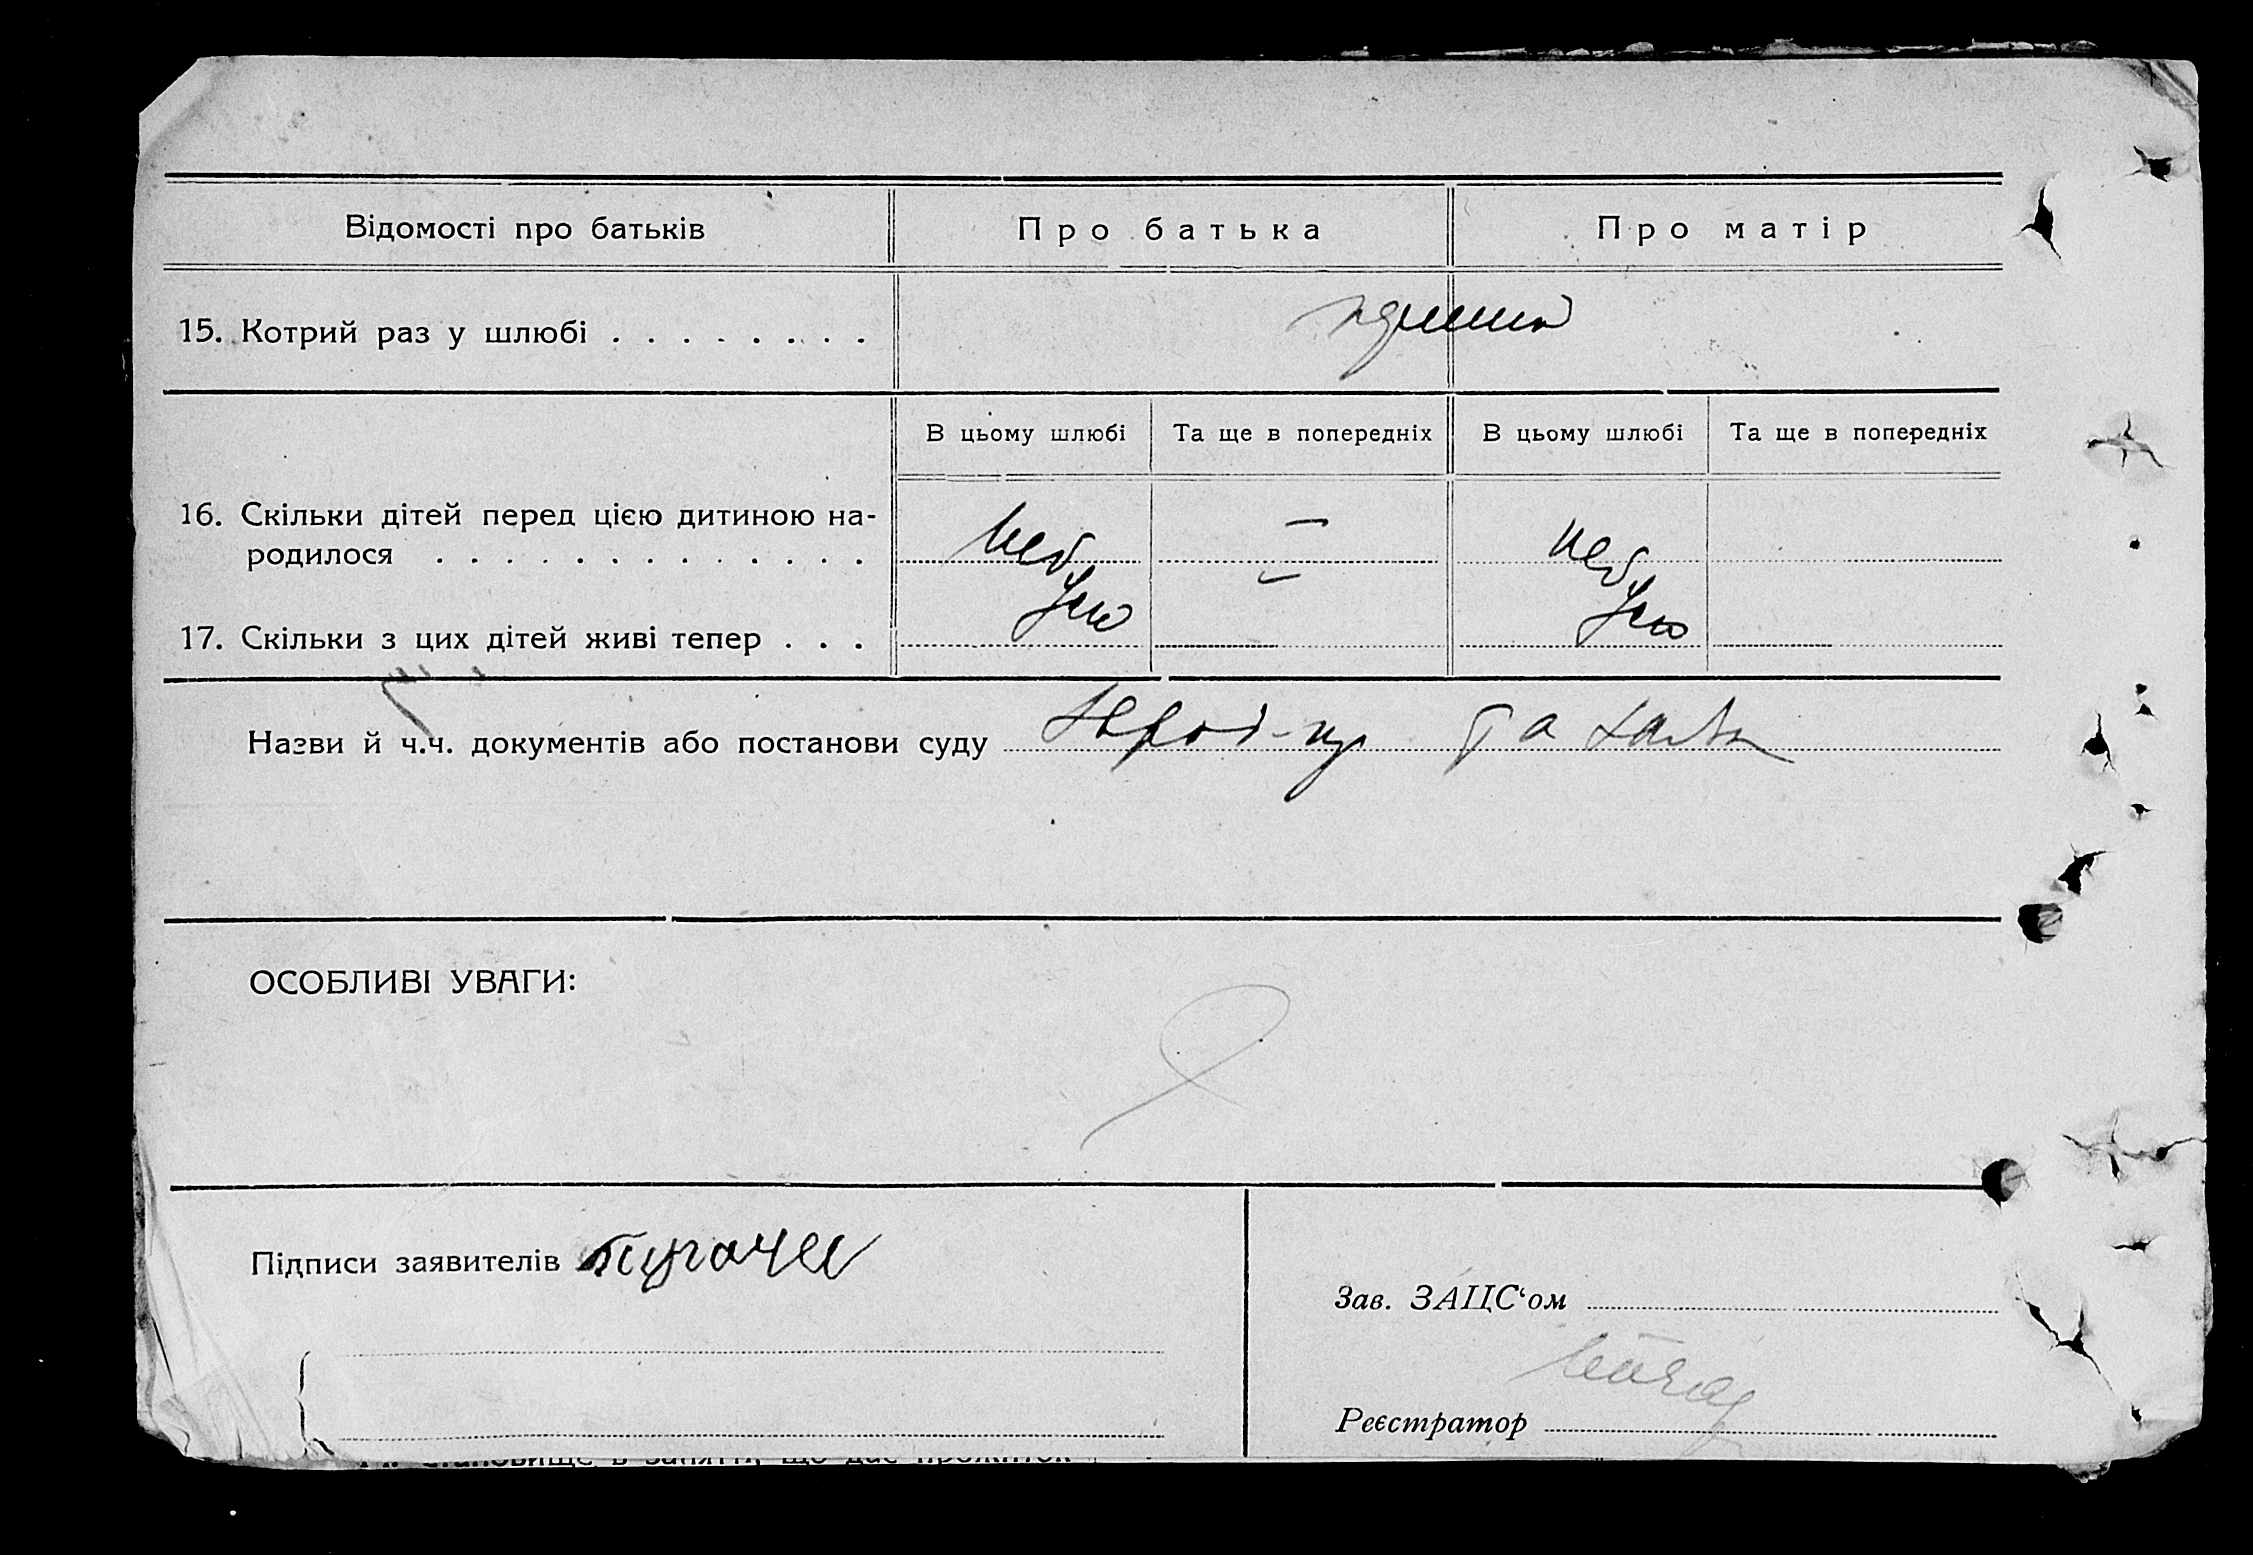 Відомості про батьків
Про батька
Про матір
15. Котрий раз у шлюбі . . . . . . . . .
В цьому шлюбі
Та ще в попередніх
В цьому шлюбі
Та ще в попередніх
16. Скільки дітей перед цією дитиною на-
родилося . . . . . . . . . . .
не б
—
не б
17. Скільки з цих дітей живі тепер . . .
було
—
було
Назви й ч.ч. документів або постанови суду та
ОСОБЛИВІ УВАГИ:
Підписи заявителів Пугачи
Зав. ЗАЦС‘ом
Реєстратор
становище в занятті, що дає прожиток